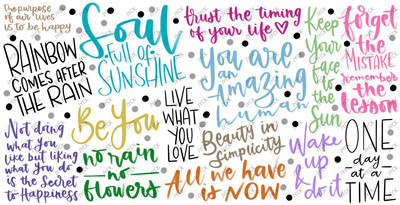 the purpose
of our lives
is to be happy
RAINBOW
COMES AFTER
THE RAIN
Soul
full of
SUNSHINE
trust the timing
of your life
You are
an
Amazing
human
Keep
Your
face
to
the
Sun
forget
the
MISTAKE
remember
the
lesson
Not doing
what you
like but liking
what you do
is the Secret
to Happiness
Be You
no rain
no
flowers
LIVE
WHAT
YOU
LOVE
Beauty in
Simplicity
All we have
is NOW
Wake
up
& do it
ONE
day
at a
TIME